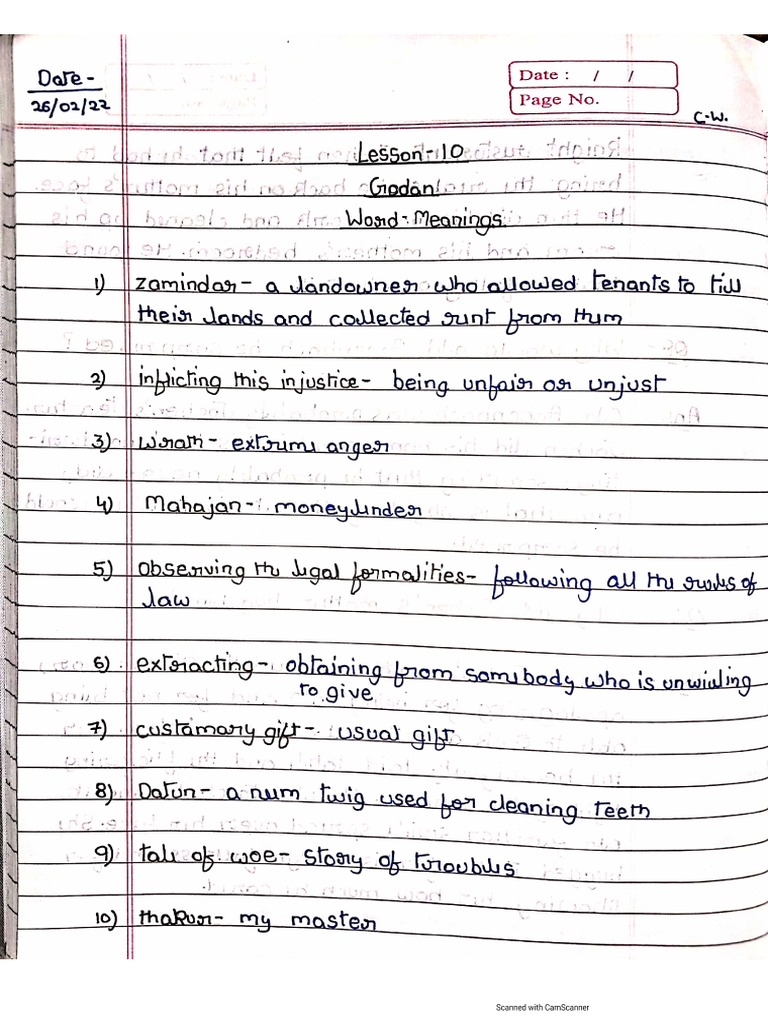 Date -
26/02/22
Date : / /
Page No.
C.W.
Lesson-10
Godan
Word-Meanings
1) zamindar- a landowner who allowed tenants to till
their lands and collected rent from them
2) inflicting this injustice- being unfair or unjust
3) wrath- extreme anger
4) Mahajan- moneylender
5) observing the legal formalities- following all the rules of
law
6) extracting- obtaining from somebody who is unwilling
to give
7) customary gift- usual gift
8) Datun- a neem twig used for cleaning teeth
9) tale of woe- story of troubles
10) thakur- my master
Scanned with CamScanner